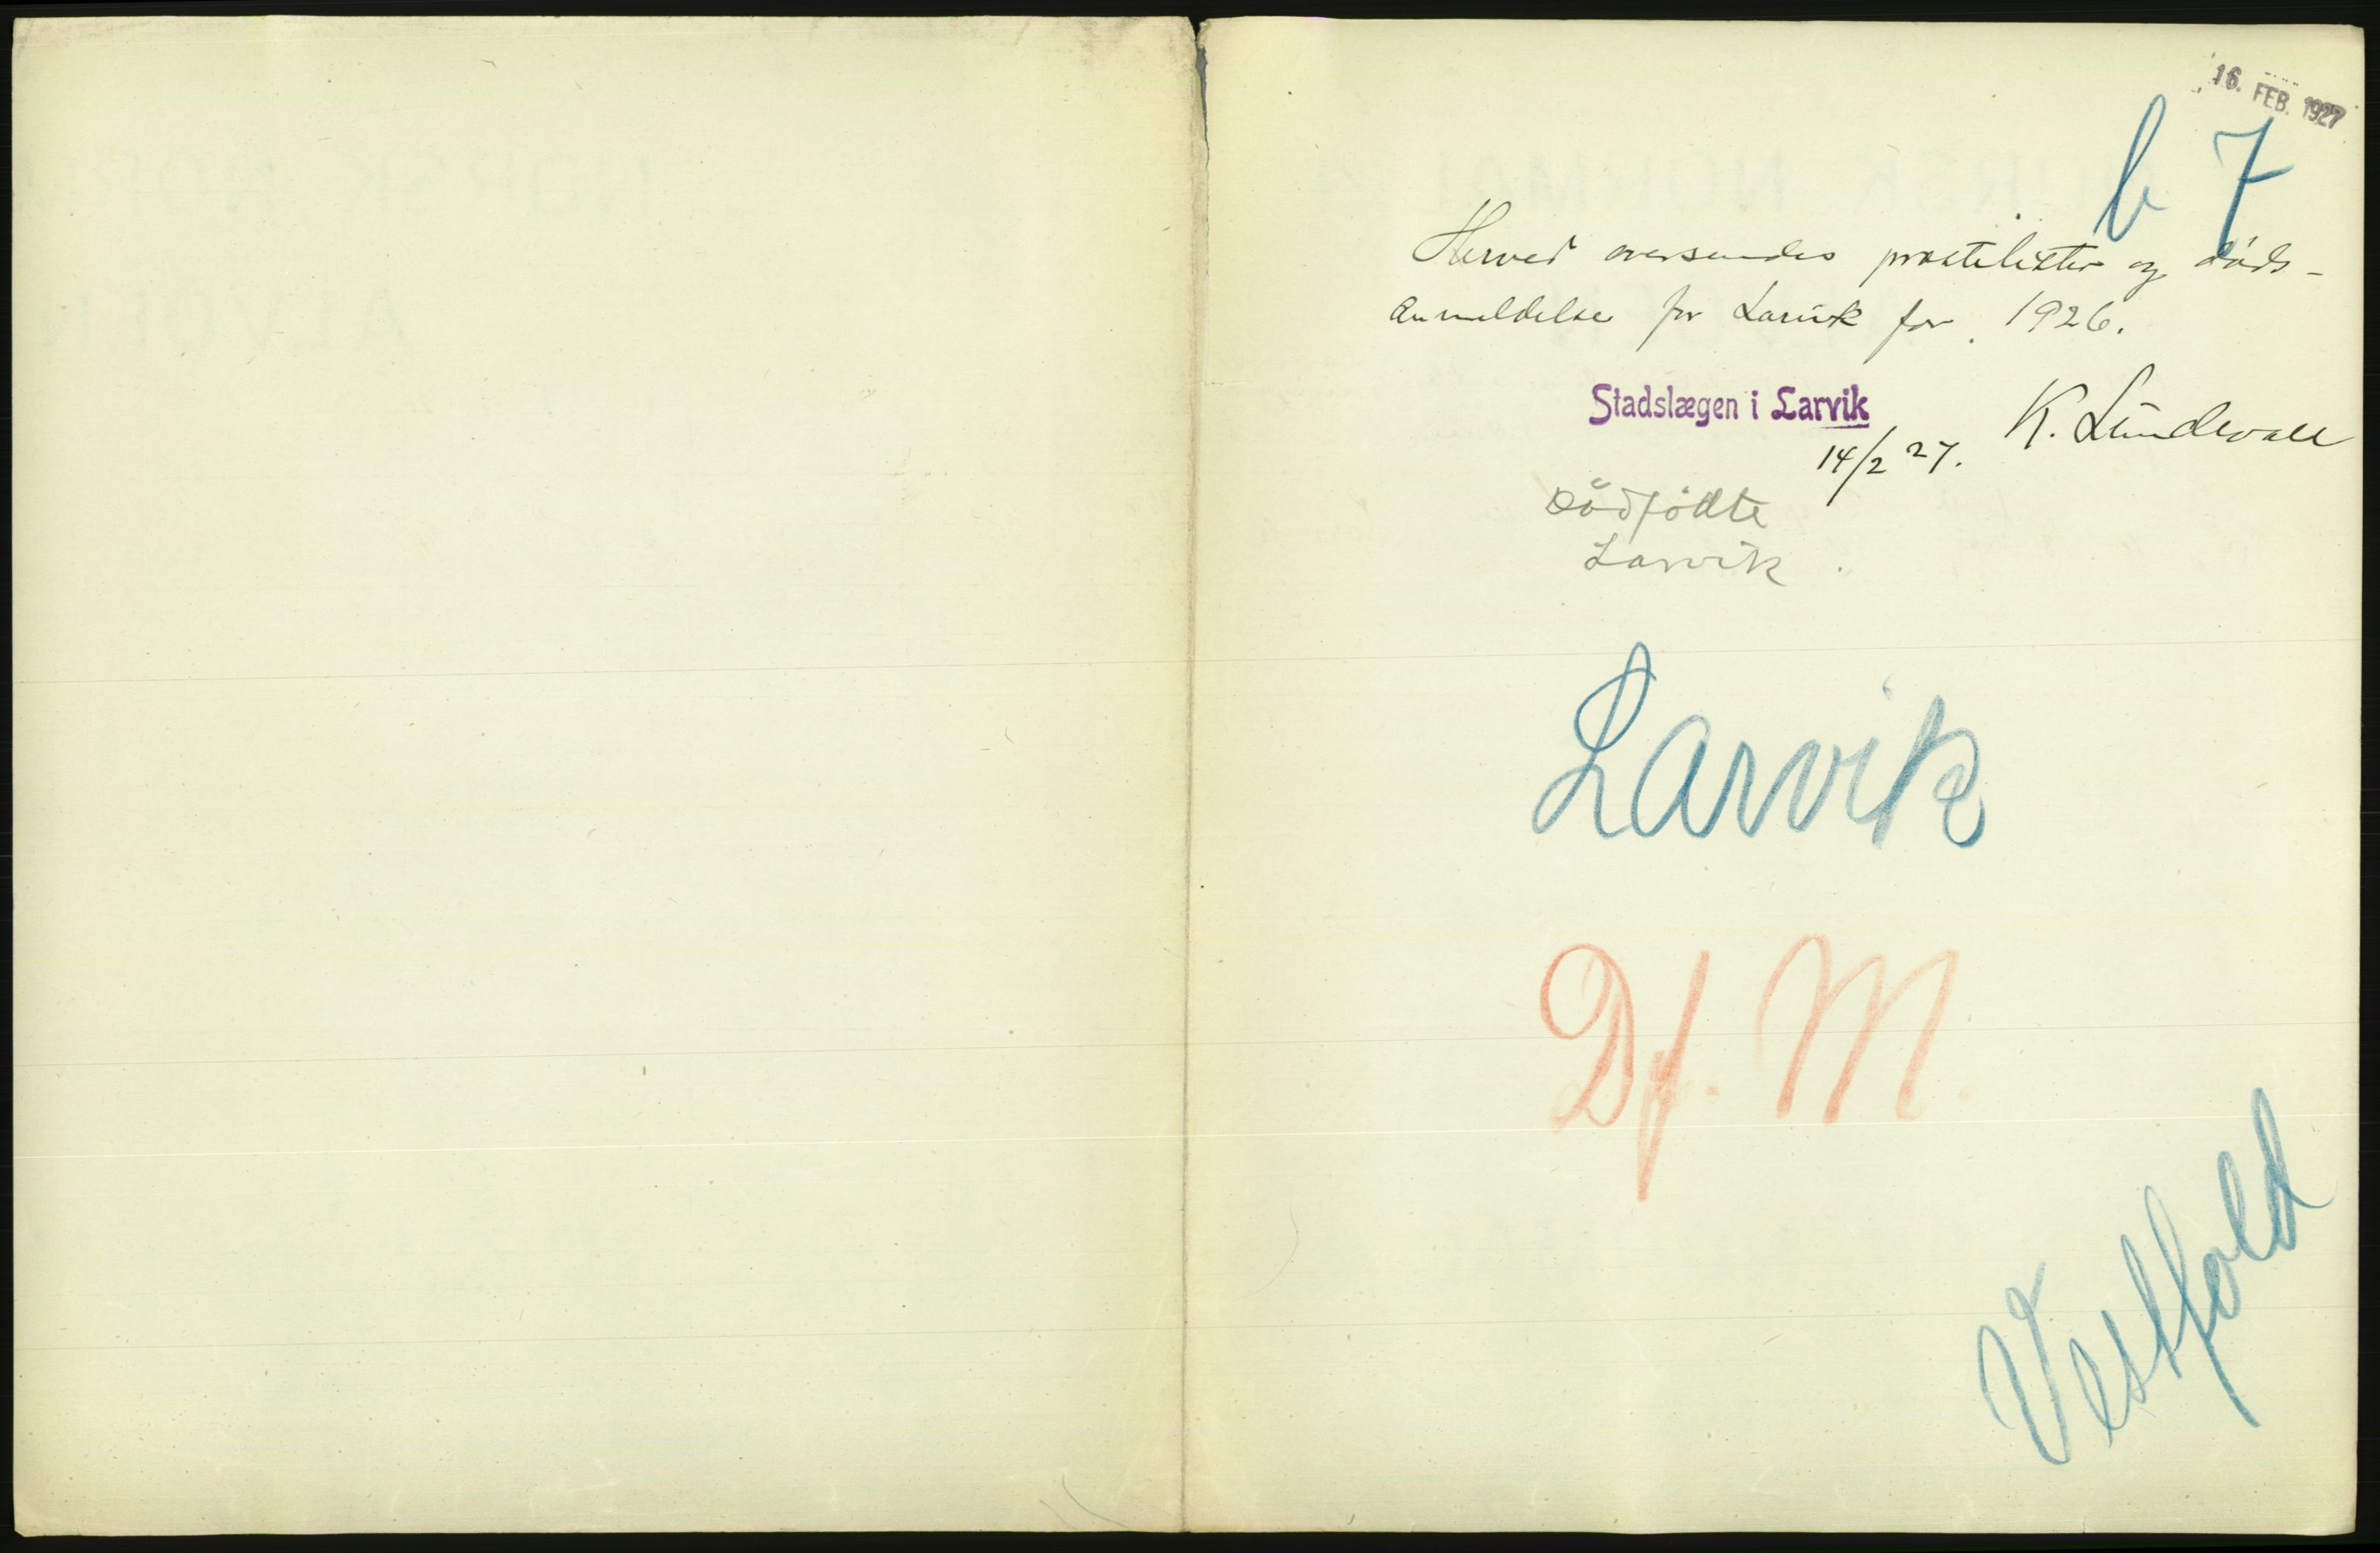 16. FEB. 1927
b 7
Herved oversendes prestelister og döds-
anmeldelse for Larvik for 1926.
Stadslægen i Larvik
14/2 27. K. Lundevall
Dödfödte
Larvik.
Larvik
Df. M.
Vestfold